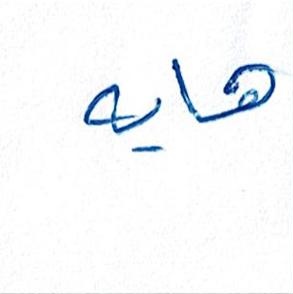 هايه